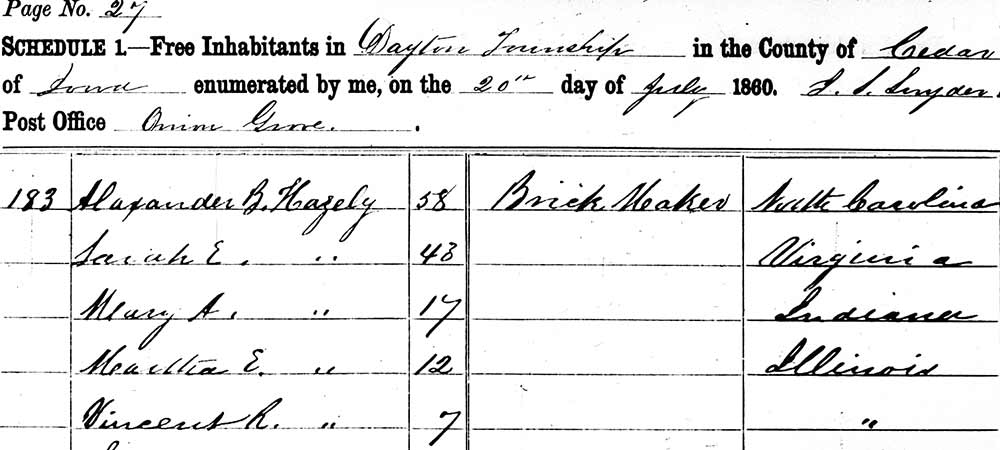 Page No. 27
SCHEDULE 1.—Free Inhabitants in Dayton Township in the County of Cedar
of Iowa enumerated by me, on the 20th day of July 1860. Snyder
Post Office Onion Grove.
183 Alexander B. Hazely 58 Brick Maker North Carolina
Sarah E. " 43 Virginia
Mary A. " 17 Indiana
Martha E. " 12 Illinois
Vincent R. " 7 "